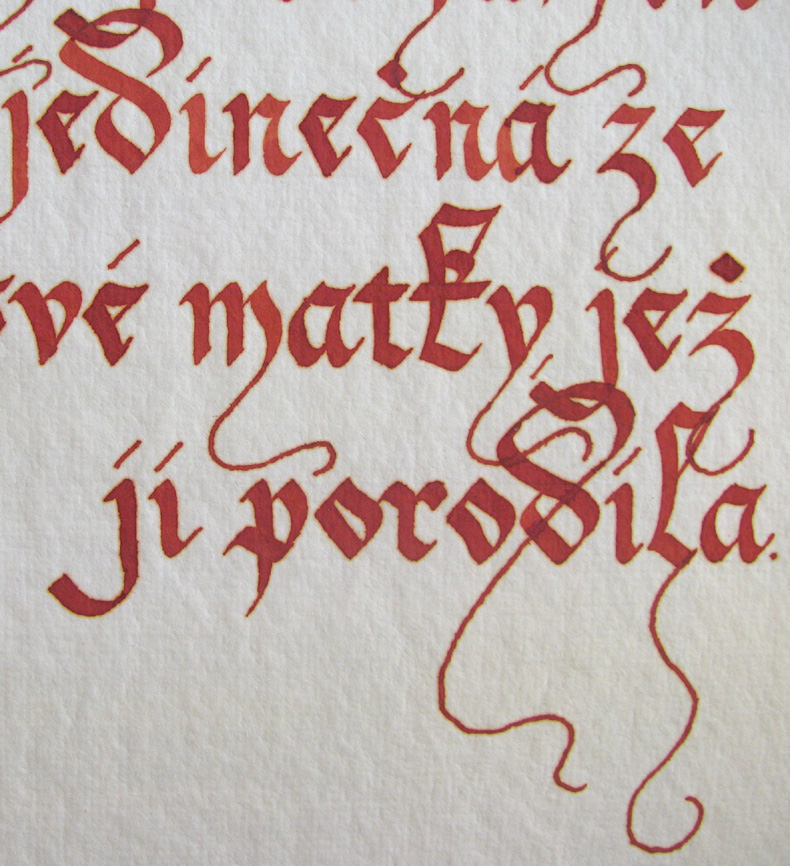 jedinečná ze
své matky jež
jí porodila.